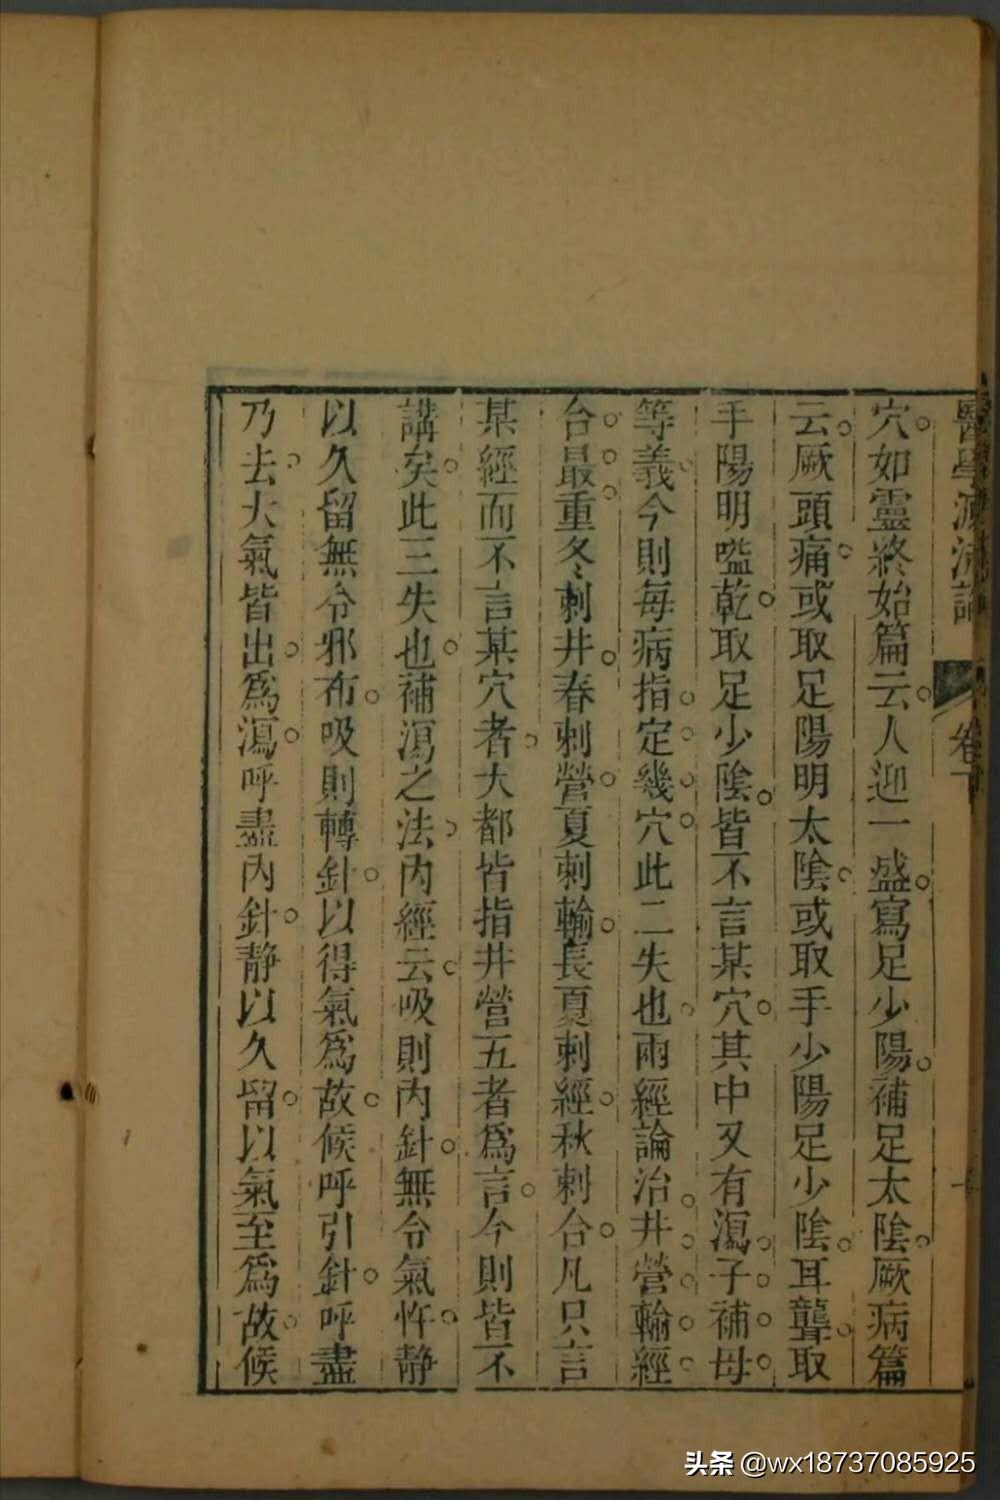 醫學源流論 卷下
穴如靈終始篇云人迎一盛寫足少陽補足太陰厥病篇
云厥頭痛或取足陽明太陰或取手少陽足少陰耳聾取
手陽明嗌乾取足少陰皆不言某穴其中又有瀉子補母
等義今則每病指定幾穴此二失也兩經論治井營輸經
合最重冬刺井春刺營夏刺輸長夏刺經秋刺合凡只言
某經而不言某穴者大都皆指井營五者爲言今則皆不
講矣此三失也補瀉之法內經云吸則內針無令氣忤靜
以久留無令邪布吸則轉針以得氣爲故候呼引針呼盡
乃去大氣皆出爲瀉呼盡內針靜以久留以氣至爲故候
头条 @wx18737085925